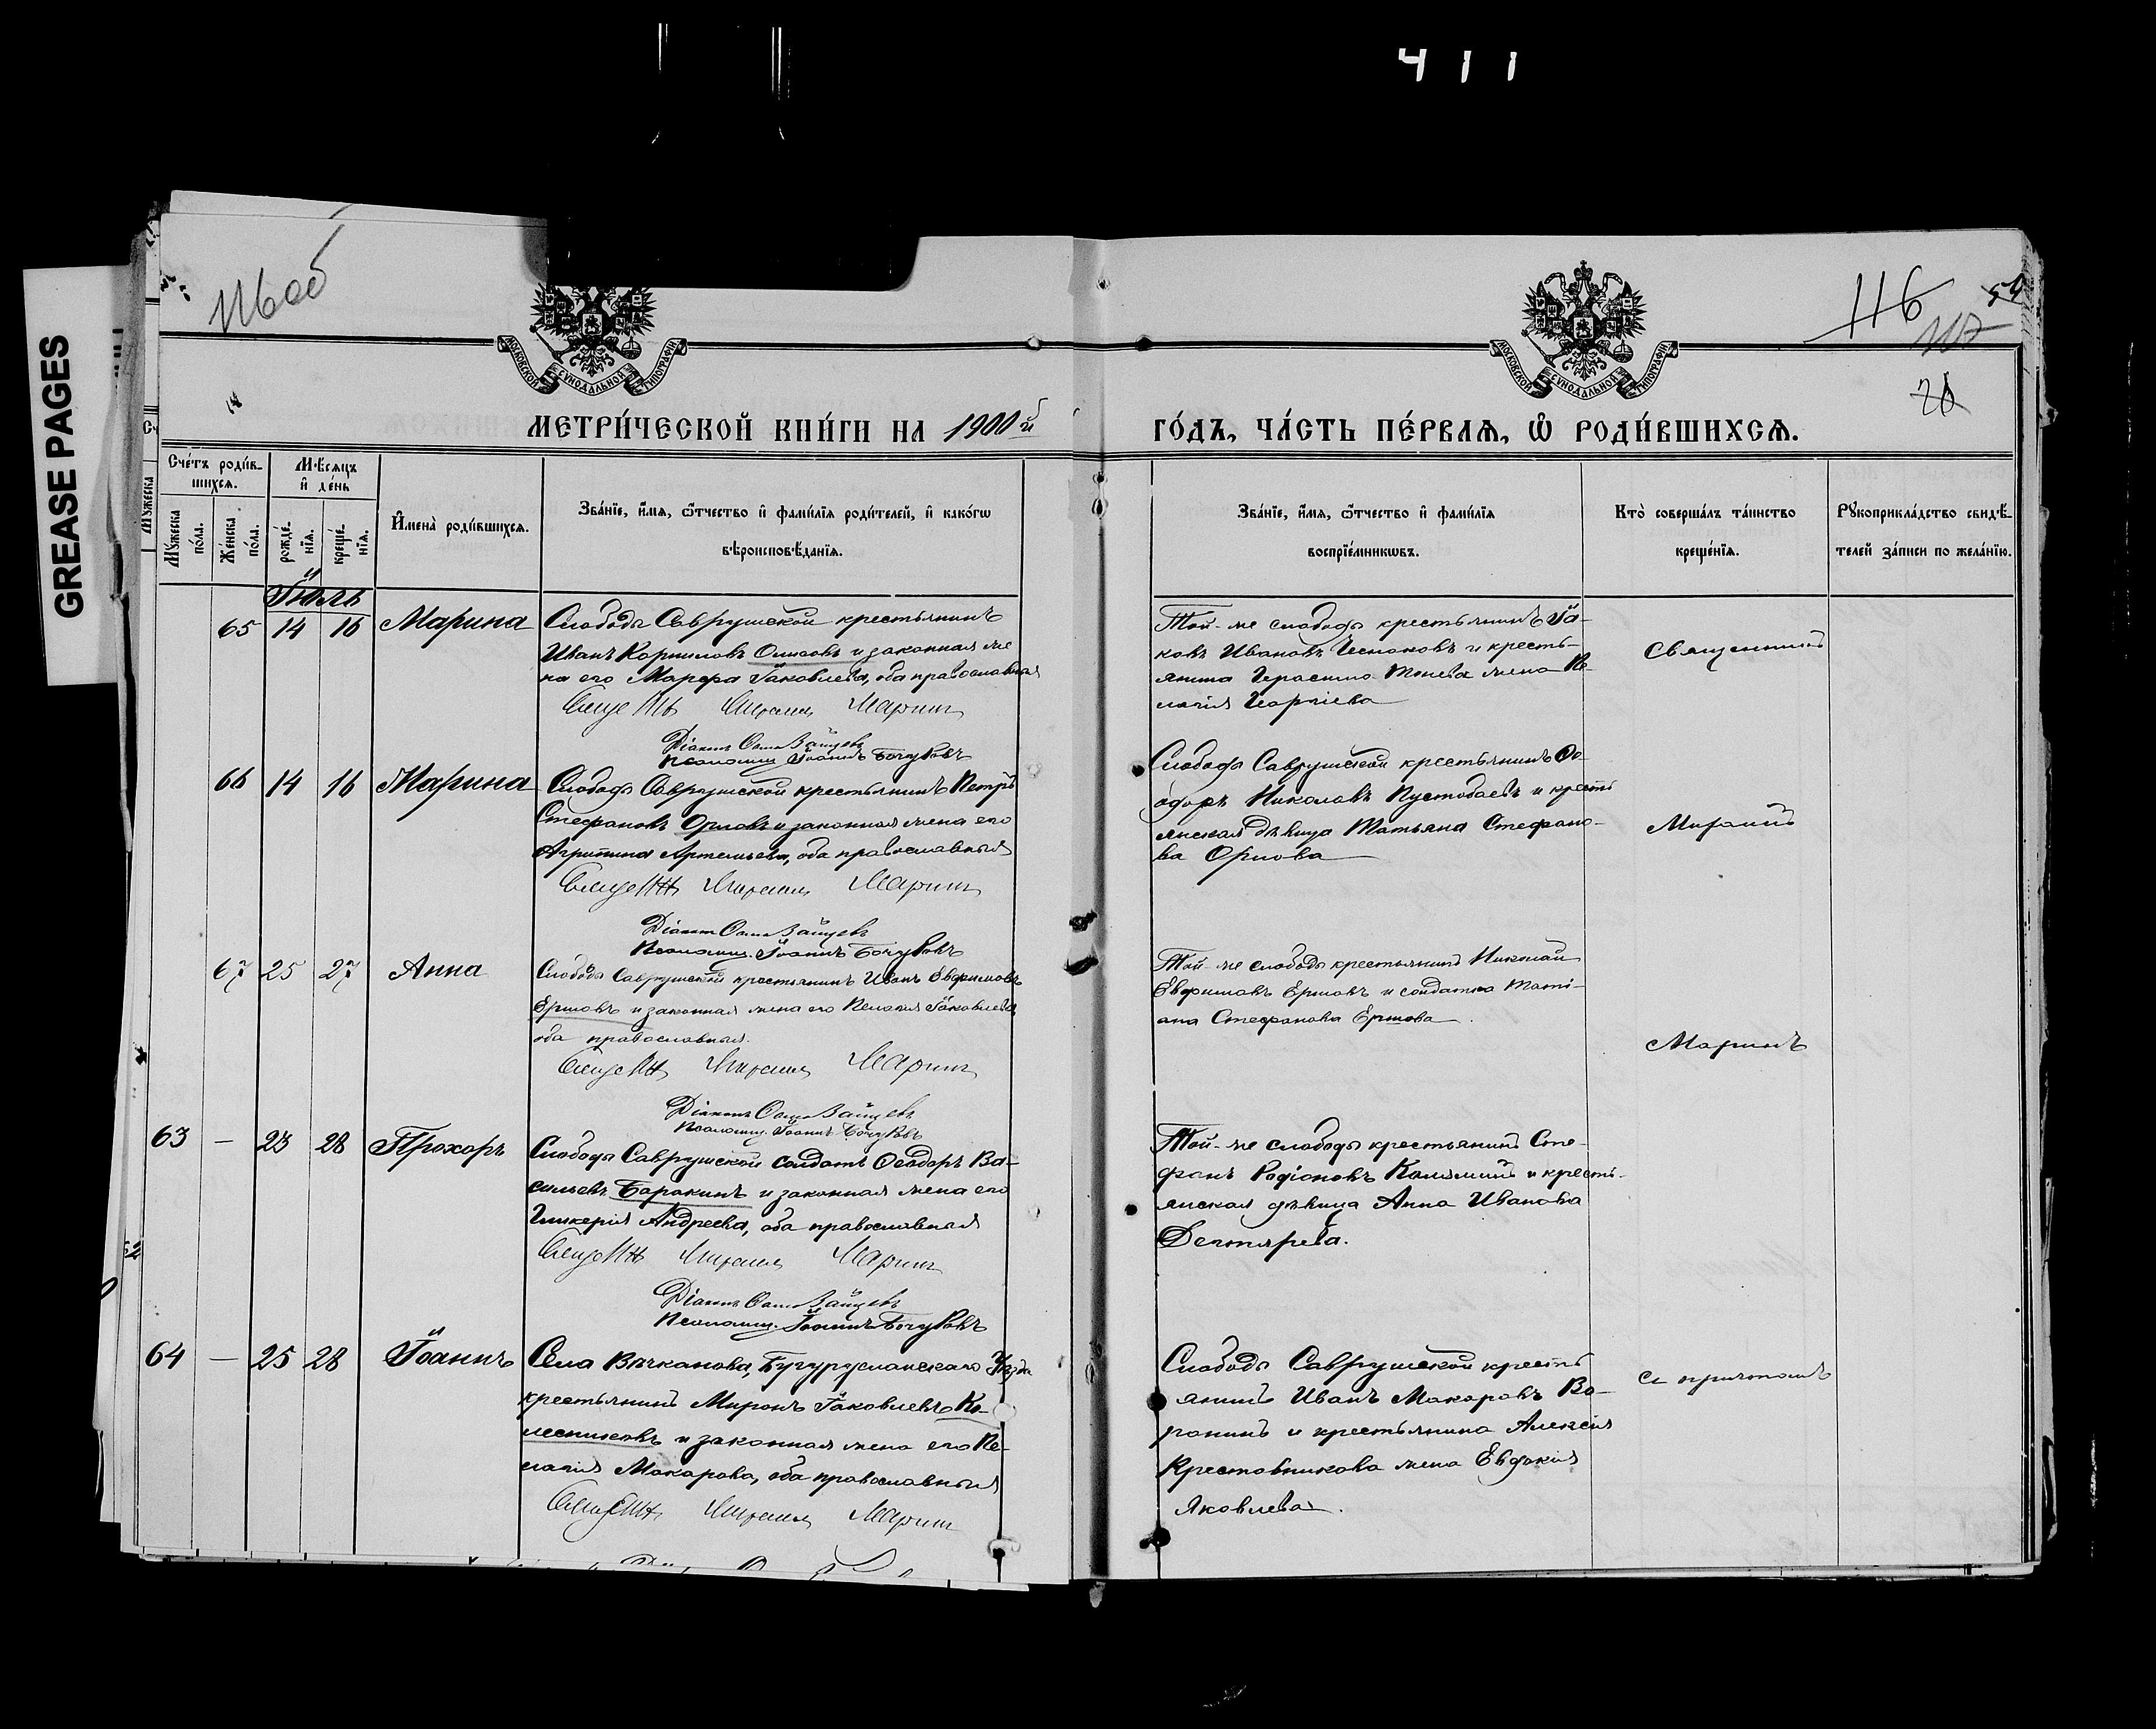 411
GREASE PAGES
116об
116
117
59
20
МОСКОВСКОЙ СѴНОДАЛЬНОЙ ТИПОГРАФІИ
МОСКОВСКОЙ СѴНОДАЛЬНОЙ ТИПОГРАФІИ
МЕТРИ́ЧЕСКОЙ КНИ́ГИ НА 1900й
ГО́ДЪ, ЧА́СТЬ ПЕ́РВАѦ, Ѽ РОДИ́ВШИХСѦ.
Сче́тъ роди́в-
шихсѧ.
Мѣ́сѧцъ
и де́нь
Мꙋ́жеска по́ла.
Же́нска по́ла.
рожде́-нїѧ.
креще́-нїѧ.
И҆мена̀ роди́вшихсѧ.
Зва́нїе, и҆́мѧ, ѻ҆́тчество и҆ фами́лїѧ роди́телей, и҆ како́гѡ
вѣроисповѣ́данїѧ.
Зва́нїе, и҆́мѧ, ѻ҆́тчество и҆ фами́лїѧ
воспрїе́мникѡвъ.
Кто̀ соверша́лъ та́инство
креще́нїѧ.
Рꙋкоприкла́дство свидѣ́-
телей за́писи по жела́нїю.
Іюль
65 14 16 Марина
Слободы Саврушской крестьянинъ
Иванъ Корниловъ Олисовъ и законная же
на его Марфа Іаковлева, оба православныя
Священ Михаилъ Маринъ
Діаконъ Зайцевъ
Псаломщ. Іоаннъ Бочкаровъ
Той-же слободы крестьянинъ Іа-
ковъ Ивановъ Чесноковъ и кресть-
янина Герасима жена Пе-
лагія Георгіева
Священникъ
66 14 16 Марина
Слободы Саврушской крестьянинъ Петръ
Стефановъ Орловъ и законная жена его
Агрипина Артемьева, оба православныя
Священ Михаилъ Маринъ
Діаконъ Зайцевъ
Псаломщ. Іоаннъ Бочкаровъ
Слободы Саврушской крестьянинъ Ѳе-
одоръ Николаевъ Пустобаевъ и кресть
янская дѣвица Татьяна Стефано-
ва Орлова
Михаилъ
67 25 27 Анна
Слободы Саврушской крестьянинъ Иванъ Евфимовъ
Ершовъ и законная жена его Пелагія Іаковлева
оба православныя.
Священ Михаилъ Маринъ
Діаконъ Зайцевъ
Псаломщ. Іоаннъ Бочкаровъ
Той-же слободы крестьянинъ Николай
Евфимовъ Ершовъ и солдатка Тати-
ана Стефанова Ершова.
Маринъ
63 — 23 28 Прохоръ
Слободы Саврушской солдатъ Ѳеодоръ Ва-
сильевъ Баракинъ и законная жена его
Гликерія Андреева, оба православныя
Священ Михаилъ Маринъ
Діаконъ Зайцевъ
Псаломщ. Іоаннъ Бочкаровъ
Той-же слободы крестьянинъ Сте-
фанъ Родіоновъ и кресть-
янская дѣвица Анна Иванова
Дегтярева.
64 — 25 28 Іоаннъ
Села Вечканова, Бугурусланскаго Уѣзда
крестьянинъ Миронъ Іаковлевъ Ко-
лесниковъ и законная жена его Пе-
лагія Макарова, оба православныя
Священ Михаилъ Маринъ
Слободы Саврушской кресть
янинъ Иванъ Макаровъ Во-
ронинъ и крестьянина Алексія
Крестовникова жена Евдокія
Яковлева.
съ причтомъ